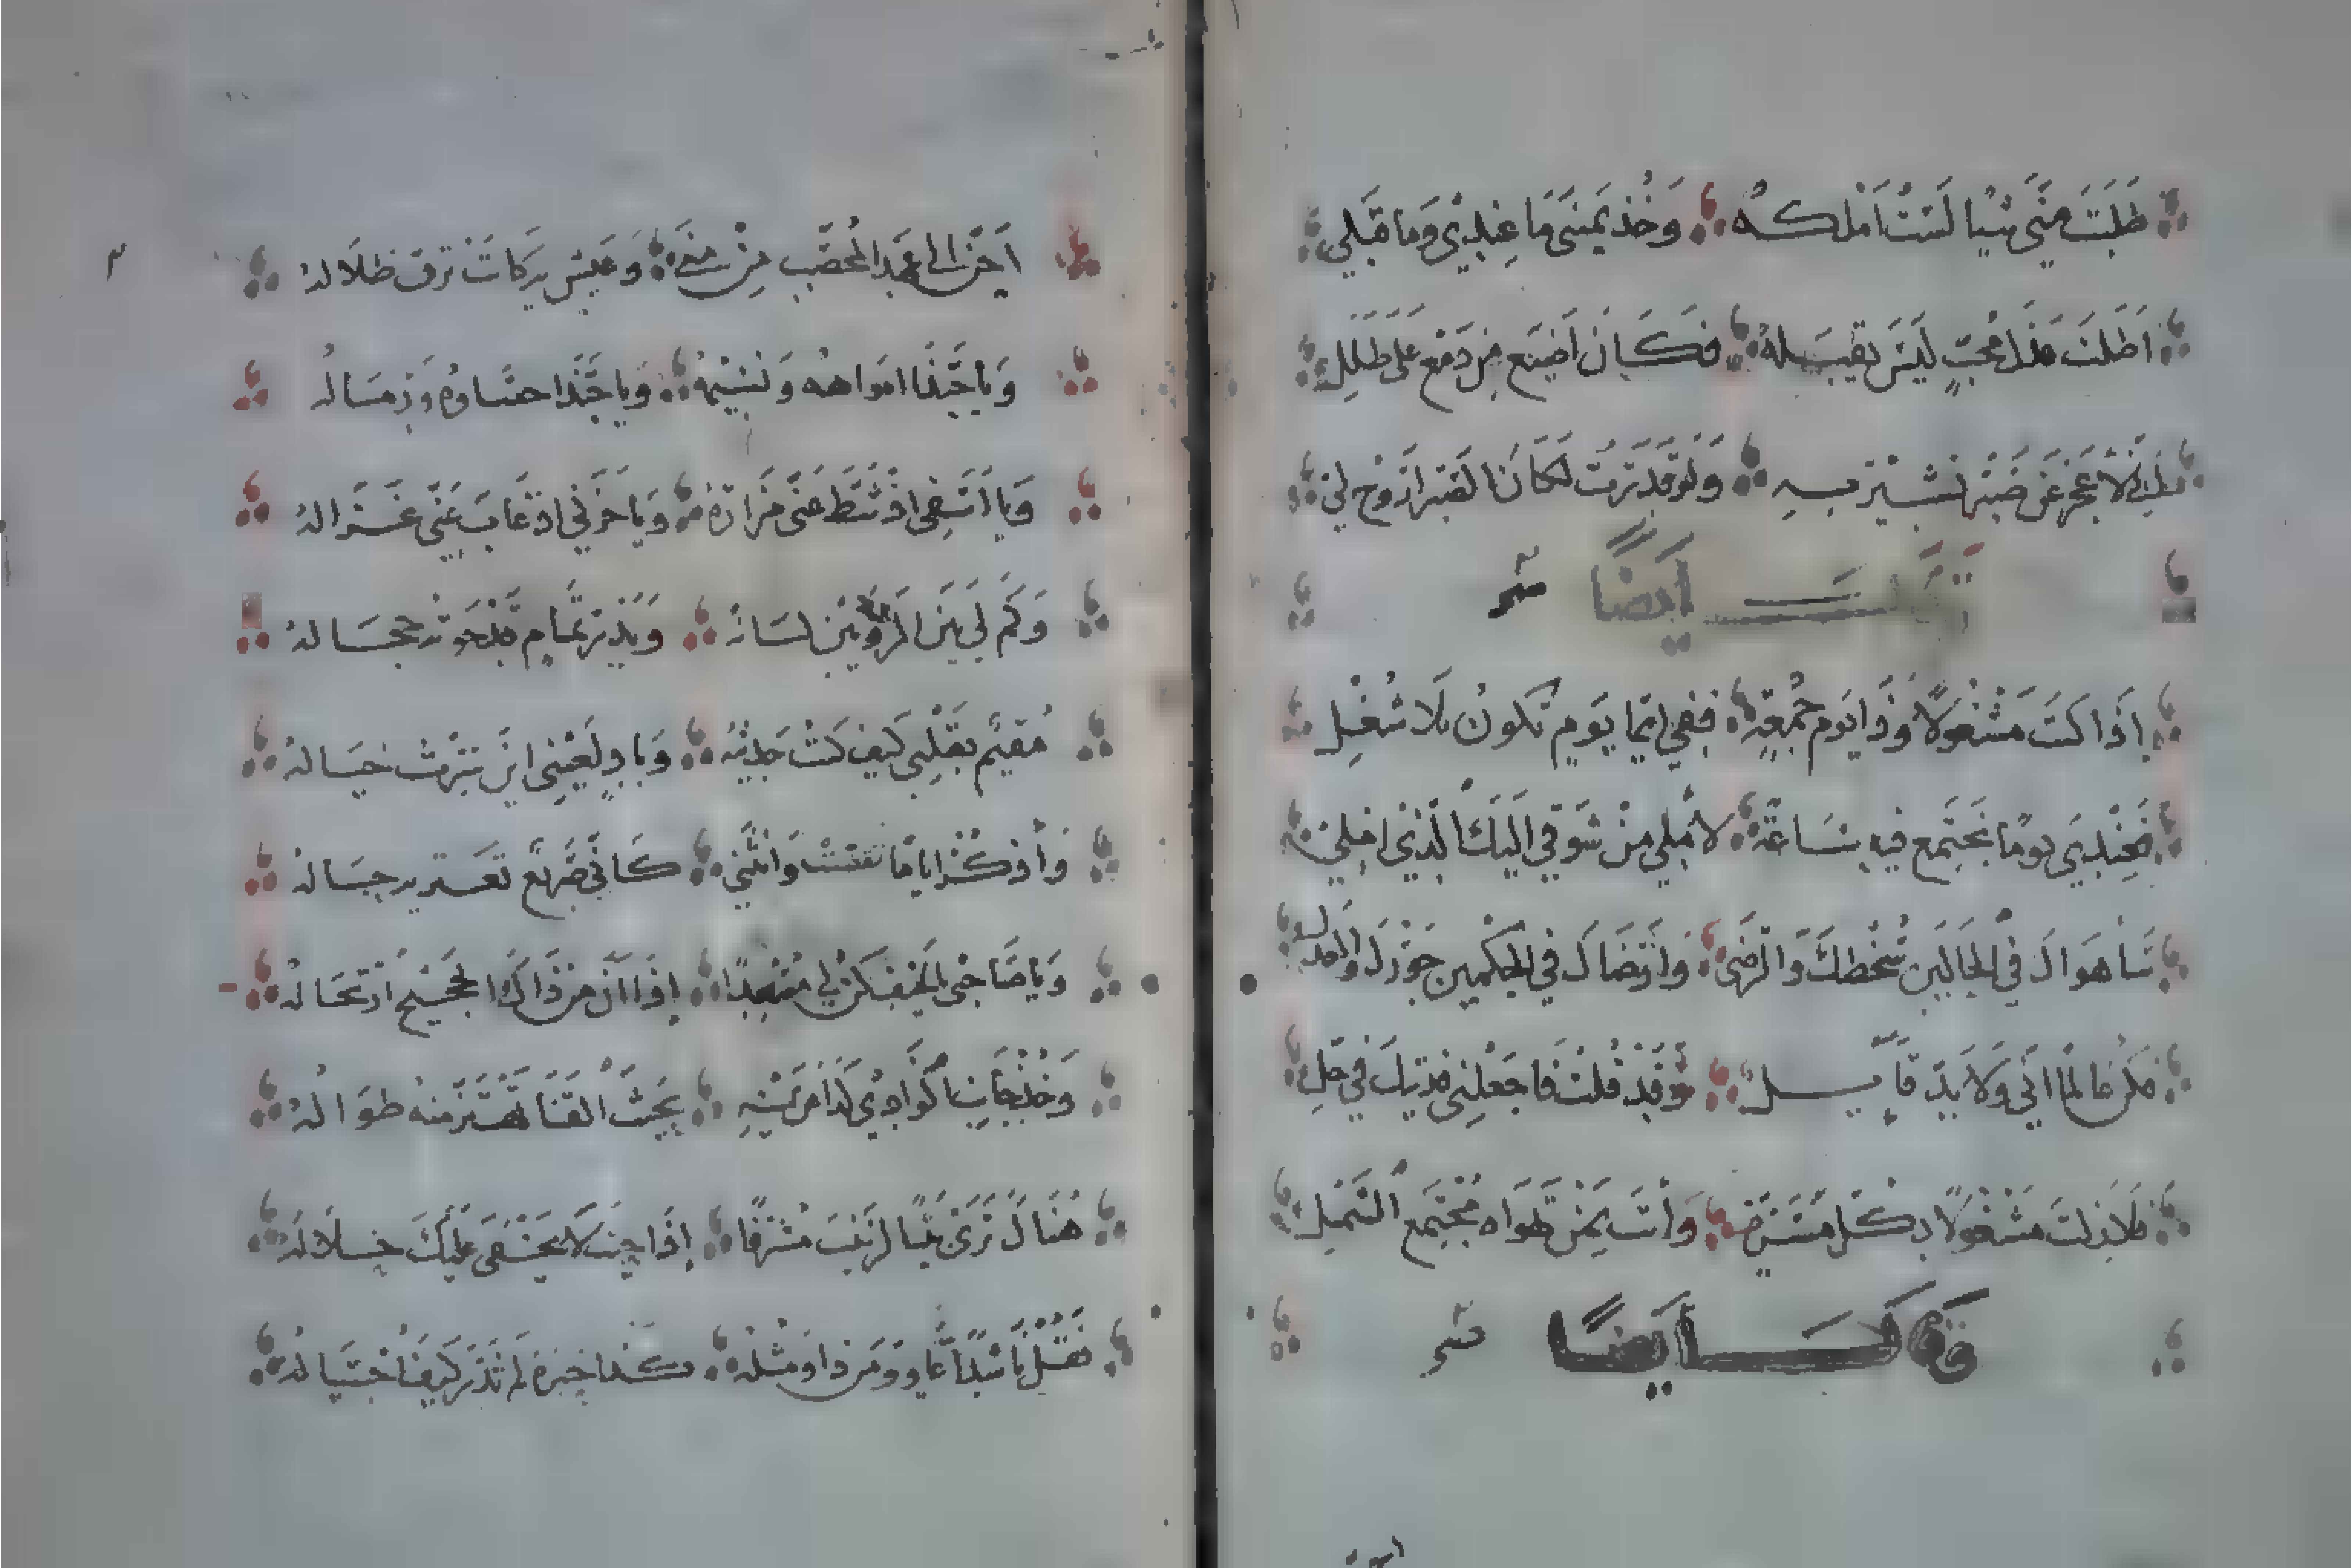 طَلَبْتَ مِنِّي شيئا لَسْتُ اَمْلكـه وَخُذ يَمينى مَا عِندِى وَمَا قبَلِى
اَطَلتَ عذل مُحبٍّ لَيْسَ يقبَـله فكَـان اَضيَع مِن دَمْع على طَلَلِ
اِنِّى لَاعجزعَن صَبْر تشـير بـه وَلَوْ قَدرْتُ لكَانَ الصَبْر اَرْوح لى
وقـال اَيضاً شعر
اِذَا كنتَ مَشْغُولاً وَذَا يَوم جُمعَةٍ ففى ايّما يَوم تكونُ بلَا شُغْلِ
فعِدْنِى يَومًا نجتَمع فيه سَاعَةً لاُملى مِنْ شَوقى اليَك الّذى اُملى
سَأهوَاك فى الحَالَين سُخْطكَ وَالرّضَى وَارْضَاك فى الحكمين جَوْرك وَالعدل
فكن عالمًا انّى وَلَا بدّ قَائـل وَقَد قلتُ فاجعَلنى فديتكَ فى حِلِّ
فلَا زِلتَ مشْغُولًا بكـلّ مسَرّة وَاَنتَ بمن تهوَاه مُجْتَمِع الشَّمْلِ
وَقَالَ اَيضًا شعر
اَحِنّ الى عَهد المُحَصَّب مِنْ مِنًى وَعَيْش به كانَتْ ترفّ ظلَاله
وَيا حبَّذا امواهه وَنَسِيمُهُ وَيا حبَّذا حصبـاؤه وَرمَاله
وَيا اَسَفى اذ شَطّ عَنّى مَزَاره وَيا حَزَنى اذ غَابَ عَنّى غَـزَاله
وَكَم لى بَين المَروتين لبَانة وَبَدْر تمَام قد حَوَتْه حجَـاله
مُقيم بقَلْبى كيف كنتُ حَدِيثُه وَبادٍ لعَيْنِى اين سِرْتُ خيَـاله
وَاَذكُر ايامًا تقضّتْ وَانثَنى كَانى صَرِيع تعـتريه خبـاله
وَيا صَاحبى بالخَيْف كن لى مُسْعِدًا اِذَا آن من ذَاكَ الحَجِيْج ارتحَاله
وَخُذ جَانب الوادى كذا عن يَمينه بحيْثُ القنَا تهْتَزّ منه طوَاله
هُنَاكَ تَرَى بَيْتًا لزَيْنَبَ مُشْرفًا اِذَا جِئتَ لا يَخْفَى عَلَيْكَ جـلَاله
فقُلْ نَاشدًا بَيْتًا وَمَن ذا ومثله كـذا خِبْرَة لم تَدْر كَيْفَ احْتيَاله